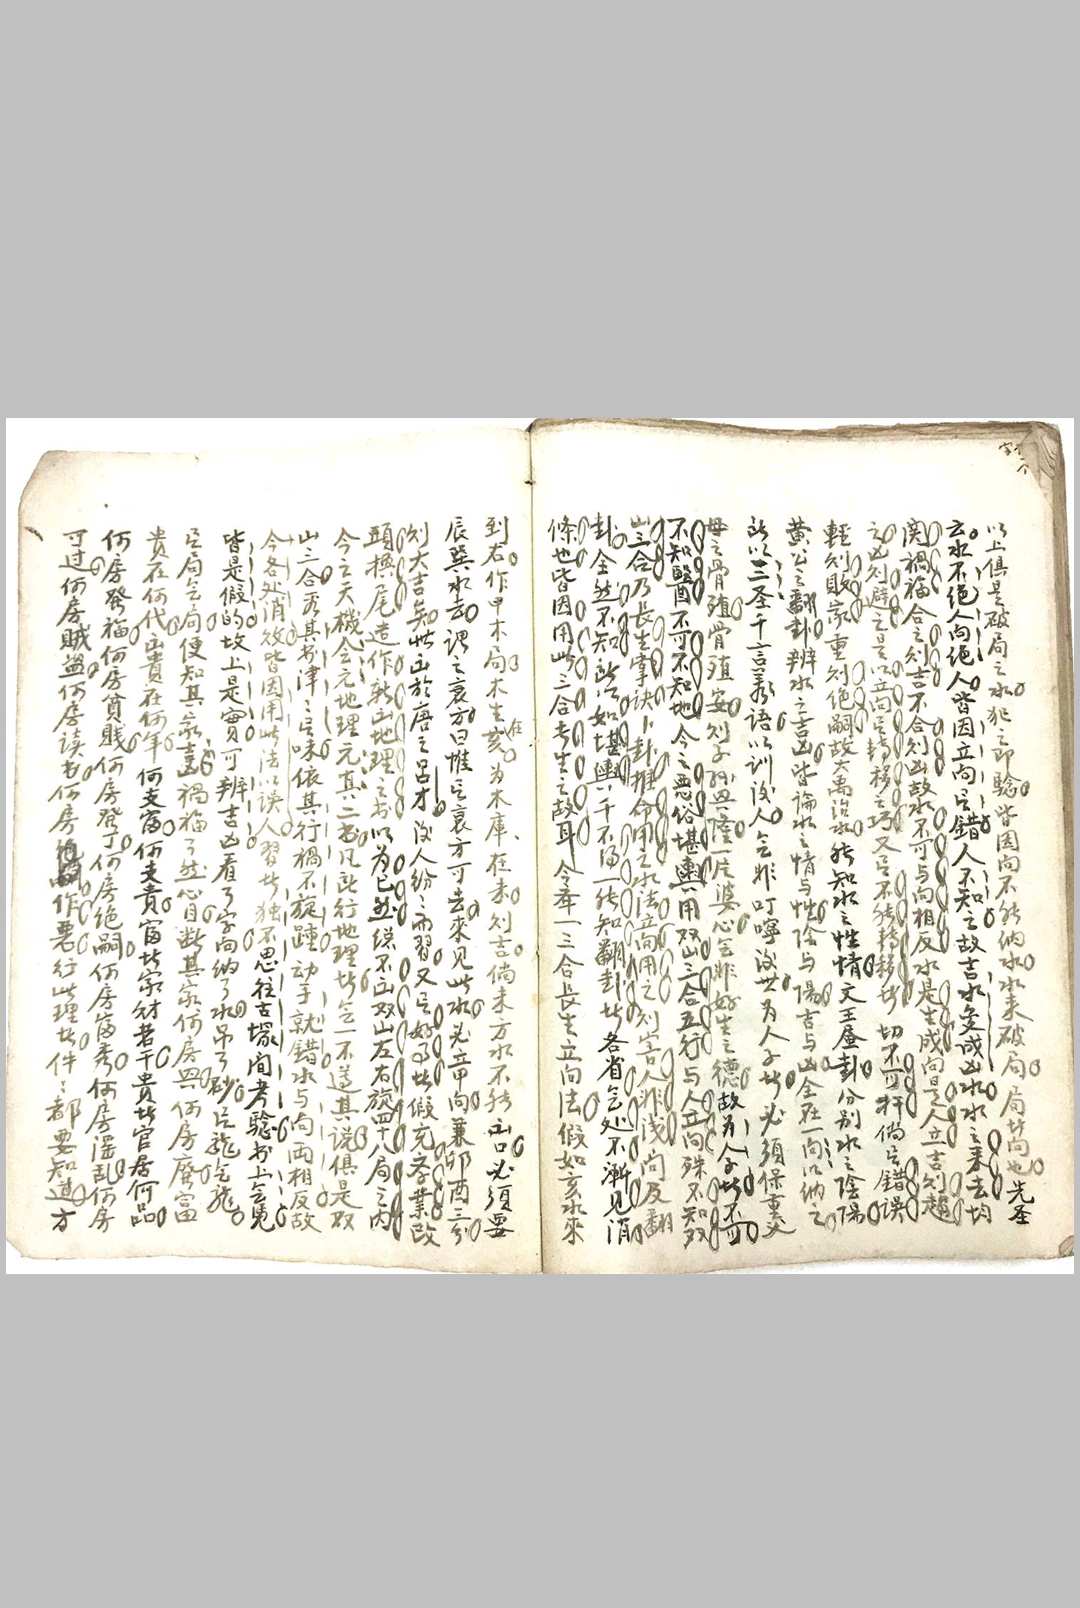 以上俱是破局之水犯之即驗皆因向不能納水水来破局局皆向也先圣
云水不绝人向绝人皆因立向之錯人不知之故吉水变成凶水水之来去均
関禍福合之則吉不合則凶故水不可与向相反水是生成向是人立吉則趨
之凶則避之是以立向之轉移之巧又云不能轉移者切不可扦倘之錯误
輕則敗家重則绝嗣故大禹治水能知水之性情文王叠卦分别水之陰陽
黄公之翻卦辨水之吉凶皆論水之情与性陰与陽吉与凶全在一向以纳之
此以三圣千言萬語以训後人無非叮嚀後世为人子者必須保重父
母之骨殖骨殖安則子孫興隆一片婆心無非好生之德故为人子者不可
不知醫不可不知地今之恶俗堪輿用双山三合五行与人立向殊不知双
山三合乃長生掌訣卜卦推命用之水法立向用之則害人非浅向及翻
卦全然不知所以如堪輿千不得一能知翻卦者各省無处不漸见消
條也皆因用此三合考生之故耳今举一三合長生立向法假如亥水來
到右作甲木局木生在亥为木庫在未則吉倘来方水不能出口必須要
辰巽水去谓之衰方曰惟之衰方可去來见此水必立甲向兼卯酉三分
則大吉矣此出於唐之吕才後人纷之而習又云好的者假充孝業改
頭換尾造作新出地理之书以为已然總不出双山左右旋四十八局之内
今之天機会元地理元真二书凡此行地理者無一不遵其说俱是双
山三合秀其书津之之味依其行禍不旋踵动手就錯水与向两相反故
今各处消败皆因用此法以误人習者独不思往古塚間考驗书上無凭
皆是假的坟上是實可辨吉凶看了字向纳了水吊了砂之龍無龍
之局無局便知其家吉凶禍福了然心目断其家何房興何房廢富
貴在何代出貴在何年何支富何支貴富者家财若干貴者官居何品
何房發福何房貧賤何房發丁何房绝嗣何房富秀何房滛乱何房
可过何房贼盗何房读书何房作恶行此理者件之都要知道方